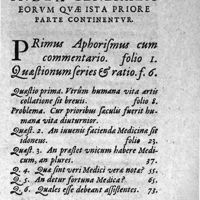 EORVM QVÆ ISTA PRIORE
PARTE CONTINENTVR.
PRimus Aphorismus cum
commentario. folio 1.
Quæstionum series & ratio. f. 6.
Quæstio prima. Vtrùm humana vita artis
collatione sit breuis. folio 8.
Problema. Cur prioribus sæculis fuerit hu-
mana vita diuturnior.
Quæst. 2. An iuueni facienda Medicina sit
idoneus. folio 23.
Quæst. 3. An præstet vnicum habere Medi-
cum, an plures. 37.
Q. 4. Quæ sint veri Medici vera nota? 55.
Q. 5. An detur fortuna Medica? 65.
Q. 6. Quales esse debeant assistentes. 73.